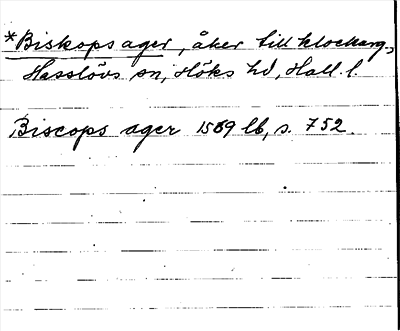 *Biskops ager, åker till klockarg.,
Hasslövs sn, Höks hd, Hall. l.
Biscops ager 1569 lb, s. 752.